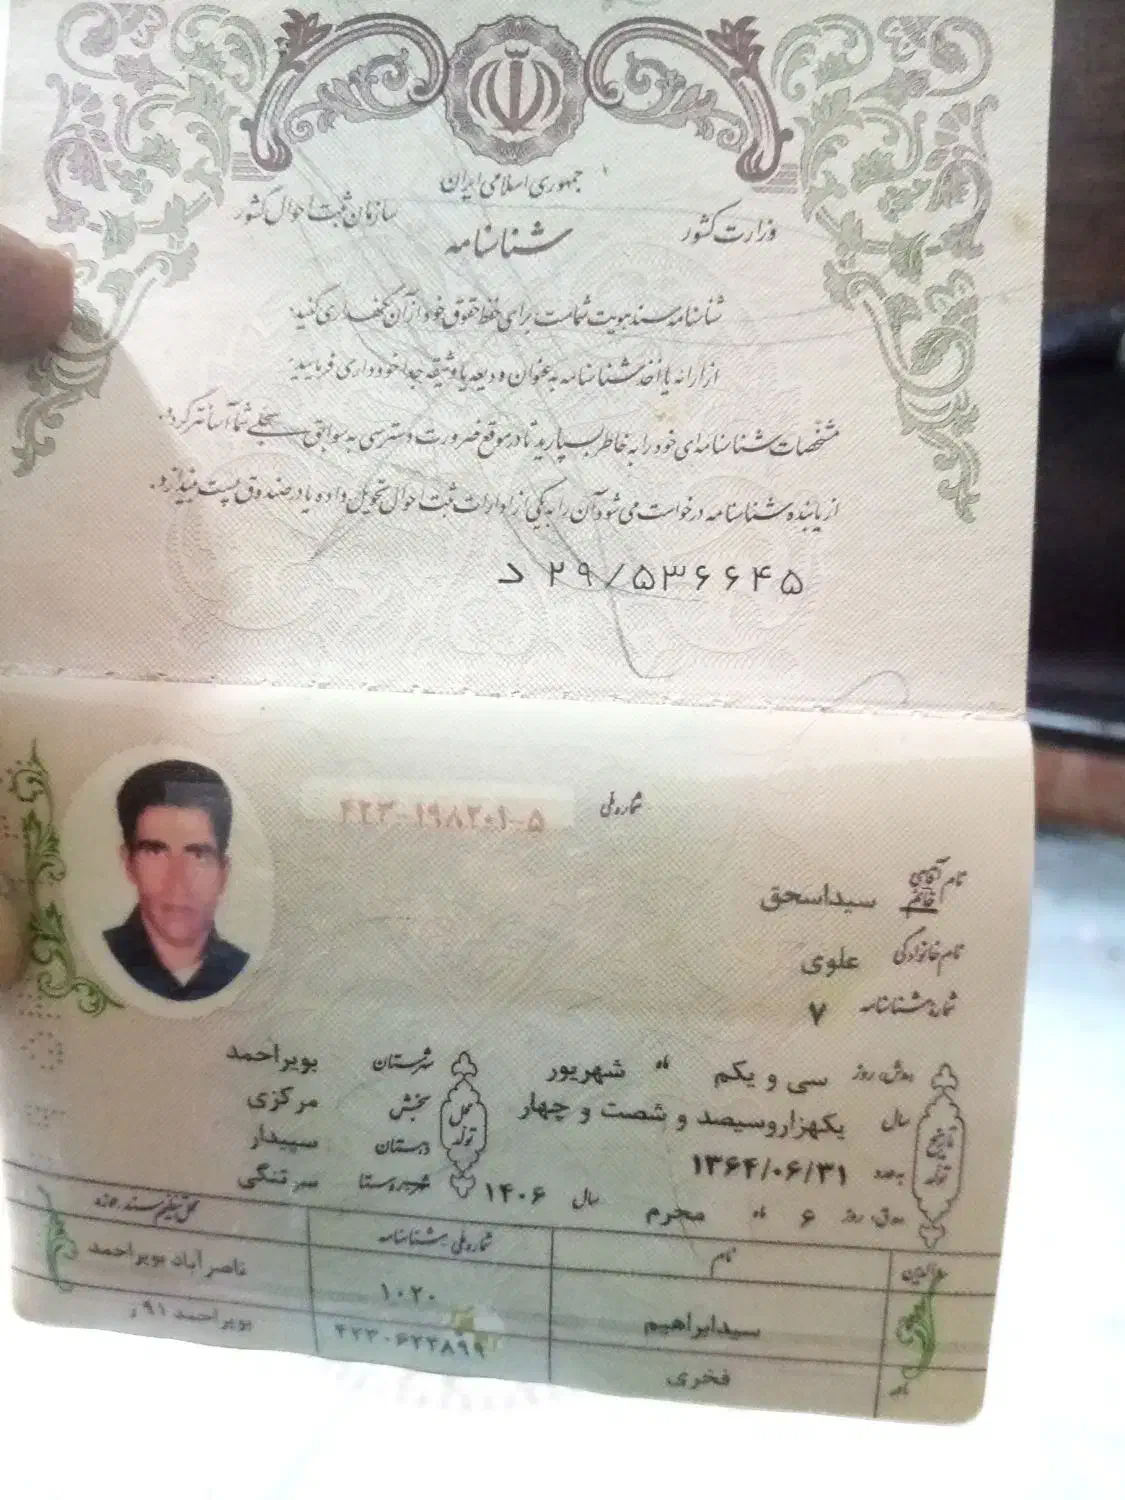 جمهوری اسلامی ایران
وزارت کشور
سازمان ثبت احوال کشور
شناسنامه
شناسنامه سند هویت شماست برای حفظ حقوق خود از آن نگهداری کنید.
از ارائه یا اخذ شناسنامه به عنوان ودیعه یا وثیقه جداً خودداری فرمایید.
مشخصات شناسنامه‌ای خود را به خاطر بسپارید تا در موقع ضرورت دسترسی به سوابق سجلی شما آسانتر گردد.
از یابنده شناسنامه درخواست می‌شود آن را به یکی از ادارات ثبت احوال تحویل داده یا در صندوق پست بیندازد.
د ۲۹/۵۳۶۶۴۵
شماره ملی ۴۲۳-۱۹۸۲۰۱-۵
نام آقای خانم سیداسحق
نام خانوادگی علوی
شماره شناسنامه ۷
تاریخ تولد
روز سی و یکم ماه شهریور
سال یکهزاروسیصد و شصت و چهار
۱۳۶۴/۰۶/۳۱
روز ۶ ماه محرم سال ۱۴۰۶
محل تولد
شهرستان بویراحمد
بخش مرکزی
دهستان سپیدار
شهر-روستا سرتنگی
والدین نام شماره ملی شناسنامه محل تنظیم سند
سیدابراهیم ۱۰۲۰ ناصرآباد بویراحمد
فخری ۴۲۳۰۶۲۴۸۹۹ بویراحمد ۹۱